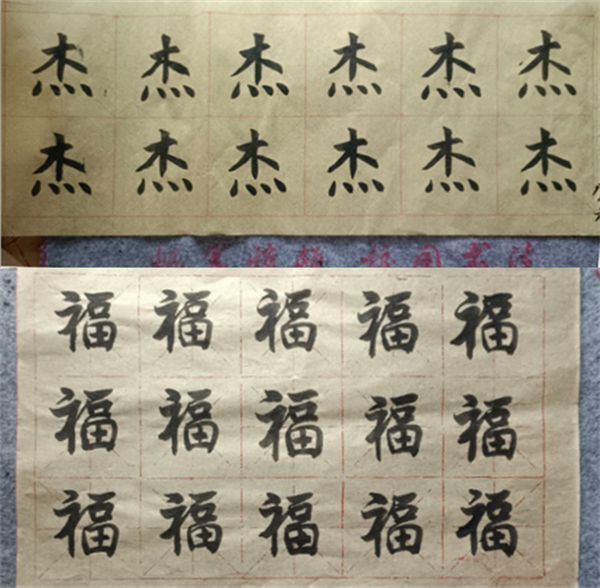 杰杰杰杰杰杰
杰杰杰杰杰杰
福福福福福
福福福福福
福福福福福